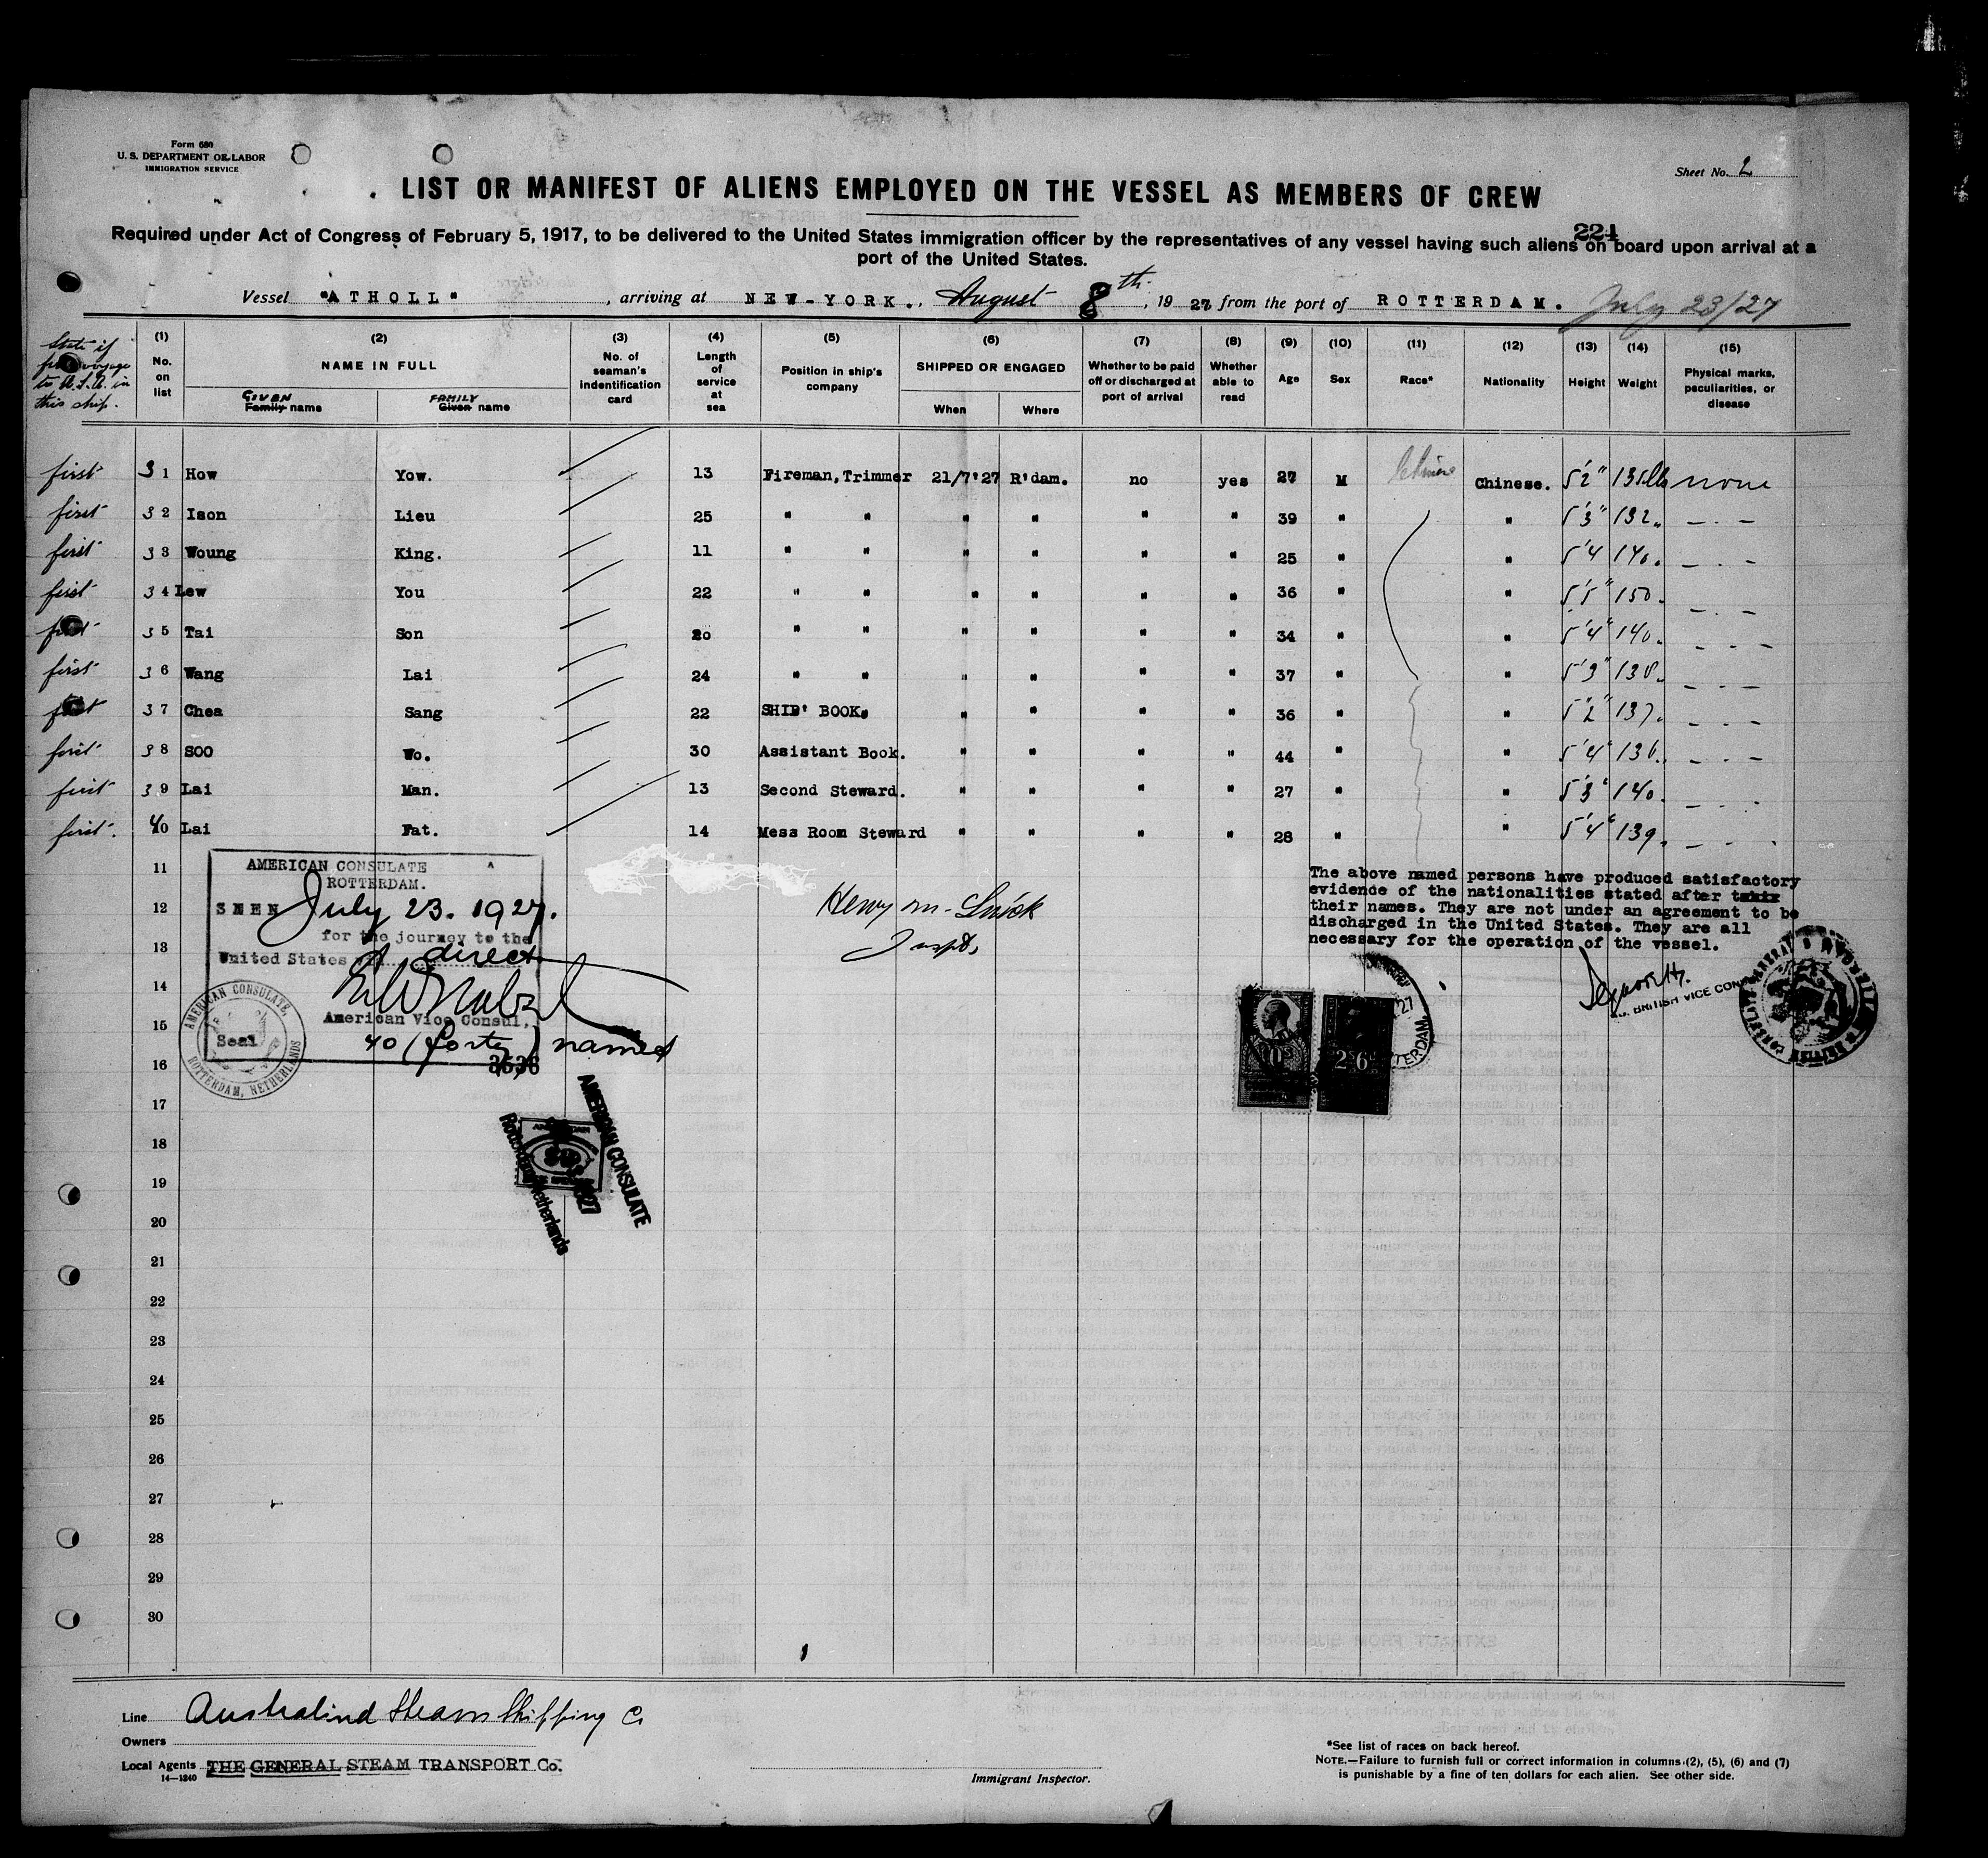 Form 680
U. S. DEPARTMENT OF LABOR
IMMIGRATION SERVICE
Sheet No. 2
LIST OR MANIFEST OF ALIENS EMPLOYED ON THE VESSEL AS MEMBERS OF CREW
221
Required under Act of Congress of February 5, 1917, to be delivered to the United States immigration officer by the representatives of any vessel having such aliens on board upon arrival at a
port of the United States.
Vessel "ATHOLL", arriving at NEW-YORK., August 8th, 1927 from the port of ROTTERDAM. July 23/27
State if first voyage to U.S.A. in this ship.
(1) No. on list
(2) NAME IN FULL
GIVEN Family name
FAMILY Given name
(3) No. of seaman's indentification card
(4) Length of service at sea
(5) Position in ship's company
(6) SHIPPED OR ENGAGED
When Where
(7) Whether to be paid off or discharged at port of arrival
(8) Whether able to read
(9) Age
(10) Sex
(11) Race*
(12) Nationality
(13) Height
(14) Weight
(15) Physical marks, peculiarities, or disease
first 31 How Yow. 13 Fireman,Trimmer 21/7'27 R'dam. no yes 27 M Chinese Chinese. 5'2" 135lb none
first 32 Ison Lieu 25 " " " " " " 39 " " 5'3" 132 " — . —
first 33 Woung King. 11 " " " " " " 25 " " 5'4 140 " — . —
first 34 Lew You 22 " " " " " " 36 " " 5'5" 150 " — . —
first 35 Tai Son 20 " " " " " " 34 " " 5'4" 140 " — . —
first 36 Wang Lai 24 " " " " " " 37 " " 5'3" 138 " — . —
first 37 Chea Sang 22 SHIP' BOOK, " " " " 36 " " 5'2" 137 " — . —
first 38 SOO Wo. 30 Assistant Book. " " " " 44 " " 5'4" 136 " — . —
first 39 Lai Man. 13 Second Steward. " " " " 27 " " 5'3" 140 " — . —
first. 40 Lai Fat. 14 Mess Room Steward " " " " 28 " " 5'4" 139 " — . —
11
12
13
14
15
16
17
18
19
20
21
22
23
24
25
26
27
28
29
30
AMERICAN CONSULATE
ROTTERDAM.
SEEN July 23. 1927.
for the journey to the
United States direct
American Vice Consul,
Seal 40 (forty) named
3536
AMERICAN CONSULATE,
ROTTERDAM, NETHERLANDS
AMERICAN CONSULATE
Rotterdam, Netherlands
1927
Henry M.
Inspt,
The above named persons have produced satisfactory
evidence of the nationalities stated after
their names. They are not under an agreement to be
discharged in the United States. They are all
necessary for the operation of the vessel.
BRITISH VICE CONSUL
10s
2s 6d
27
ROTTERDAM.
Line Australind Steam Shipping Co
Owners
Local Agents THE GENERAL STEAM TRANSPORT Co.
14—1240
Immigrant Inspector.
*See list of races on back hereof.
NOTE.—Failure to furnish full or correct information in columns (2), (5), (6) and (7)
is punishable by a fine of ten dollars for each alien. See other side.